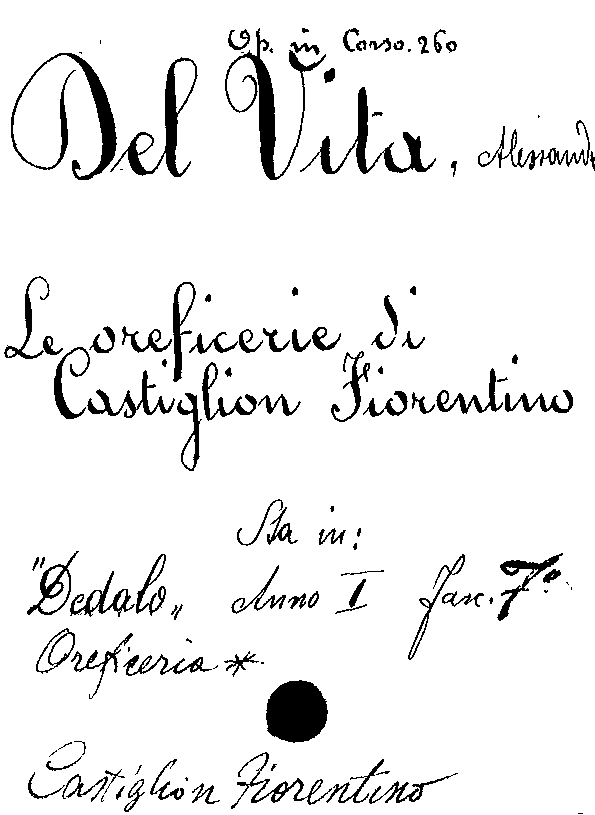 Op. in Corso. 260
Del Vita, Alessandr
Le oreficerie di
Castiglion Fiorentino
Sta in:
"Dedalo„ Anno I fasc. 7º
Oreficeria *
Castiglion Fiorentino